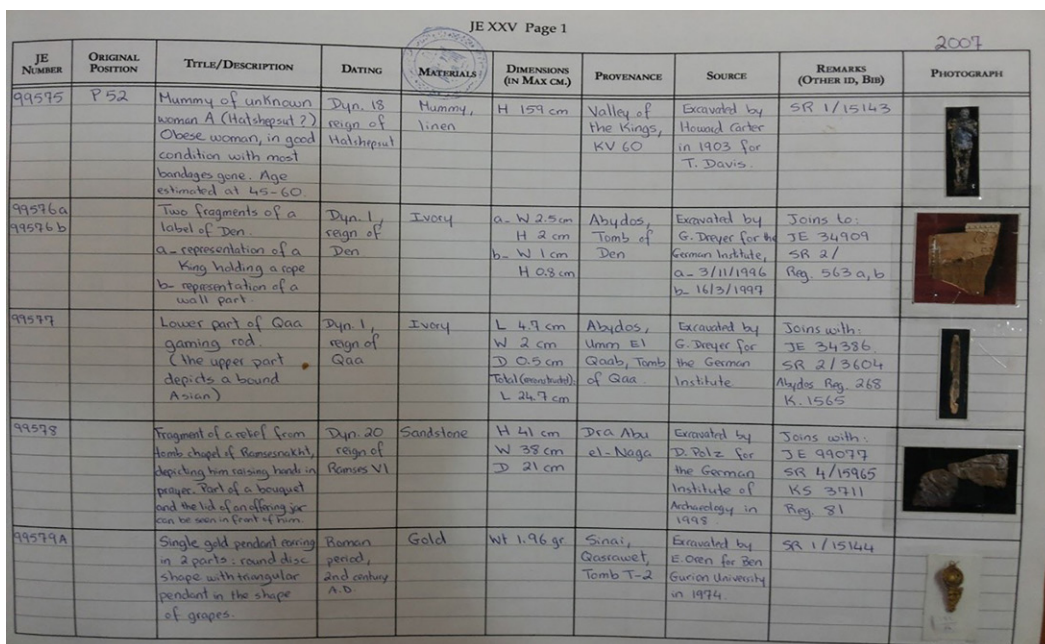 JE XXV Page 1
2007
JE NUMBER
ORIGINAL POSITION
TITLE/DESCRIPTION
DATING
MATERIALS
DIMENSIONS (IN MAX CM.)
PROVENANCE
SOURCE
REMARKS (OTHER ID, BIB)
PHOTOGRAPH
99575
P 52
Mummy of unknown
woman A (Hatshepsut?)
Obese woman, in good
condition with most
bandages gone. Age
estimated at 45-60.
Dyn. 18
reign of
Hatshepsut
Mummy,
linen
H 159 cm
Valley of
the Kings,
KV 60
Excavated by
Howard Carter
in 1903 for
T. Davis.
SR 1/15143
99576a
99576b
Two fragments of a
label of Den.
a- representation of a
King holding a rope
b- representation of a
wall part.
Dyn. 1,
reign of
Den
Ivory
a- W 2.5 cm
H 2 cm
b- W 1 cm
H 0.8 cm
Abydos,
Tomb of
Den
Excavated by
G. Dreyer for the
German Institute,
a- 3/11/1996
b- 16/3/1997
Joins to:
JE 34909
SR 2/
Reg. 563 a, b
99577
Lower part of Qaa
gaming rod.
(the upper part
depicts a bound
Asian)
Dyn. 1,
reign of
Qaa
Ivory
L 4.7 cm
W 2 cm
D 0.5 cm
Total
L 24.7 cm
Abydos,
Umm El
Qaab, Tomb
of Qaa.
Excavated by
G. Dreyer for
the German
Institute
Joins with:
JE 34386
SR 2/3604
Abydos Reg. 268
K. 1565
99578
Fragment of a relief from
tomb chapel of Ramsesnakht,
depicting him raising hands in
prayer. Part of a bouquet
and the lid of an offering jar
can be seen in front of him.
Dyn. 20
reign of
Ramses VI
Sandstone
H 41 cm
W 38 cm
D 21 cm
Dra Abu
el-Naga
Excavated by
D. Polz for
the German
Institute of
Archaeology in
1998.
Joins with:
JE 99077
SR 4/15965
KS 3711
Reg. 81
99579A
Single gold pendant earring
in 2 parts: round disc
shape with triangular
pendant in the shape
of grapes.
Roman
period,
2nd century
A.D.
Gold
Wt 1.96 gr.
Sinai,
Qasrawet,
Tomb T-2
Excavated by
E. Oren for Ben
Gurion University
in 1974.
SR 1/15144